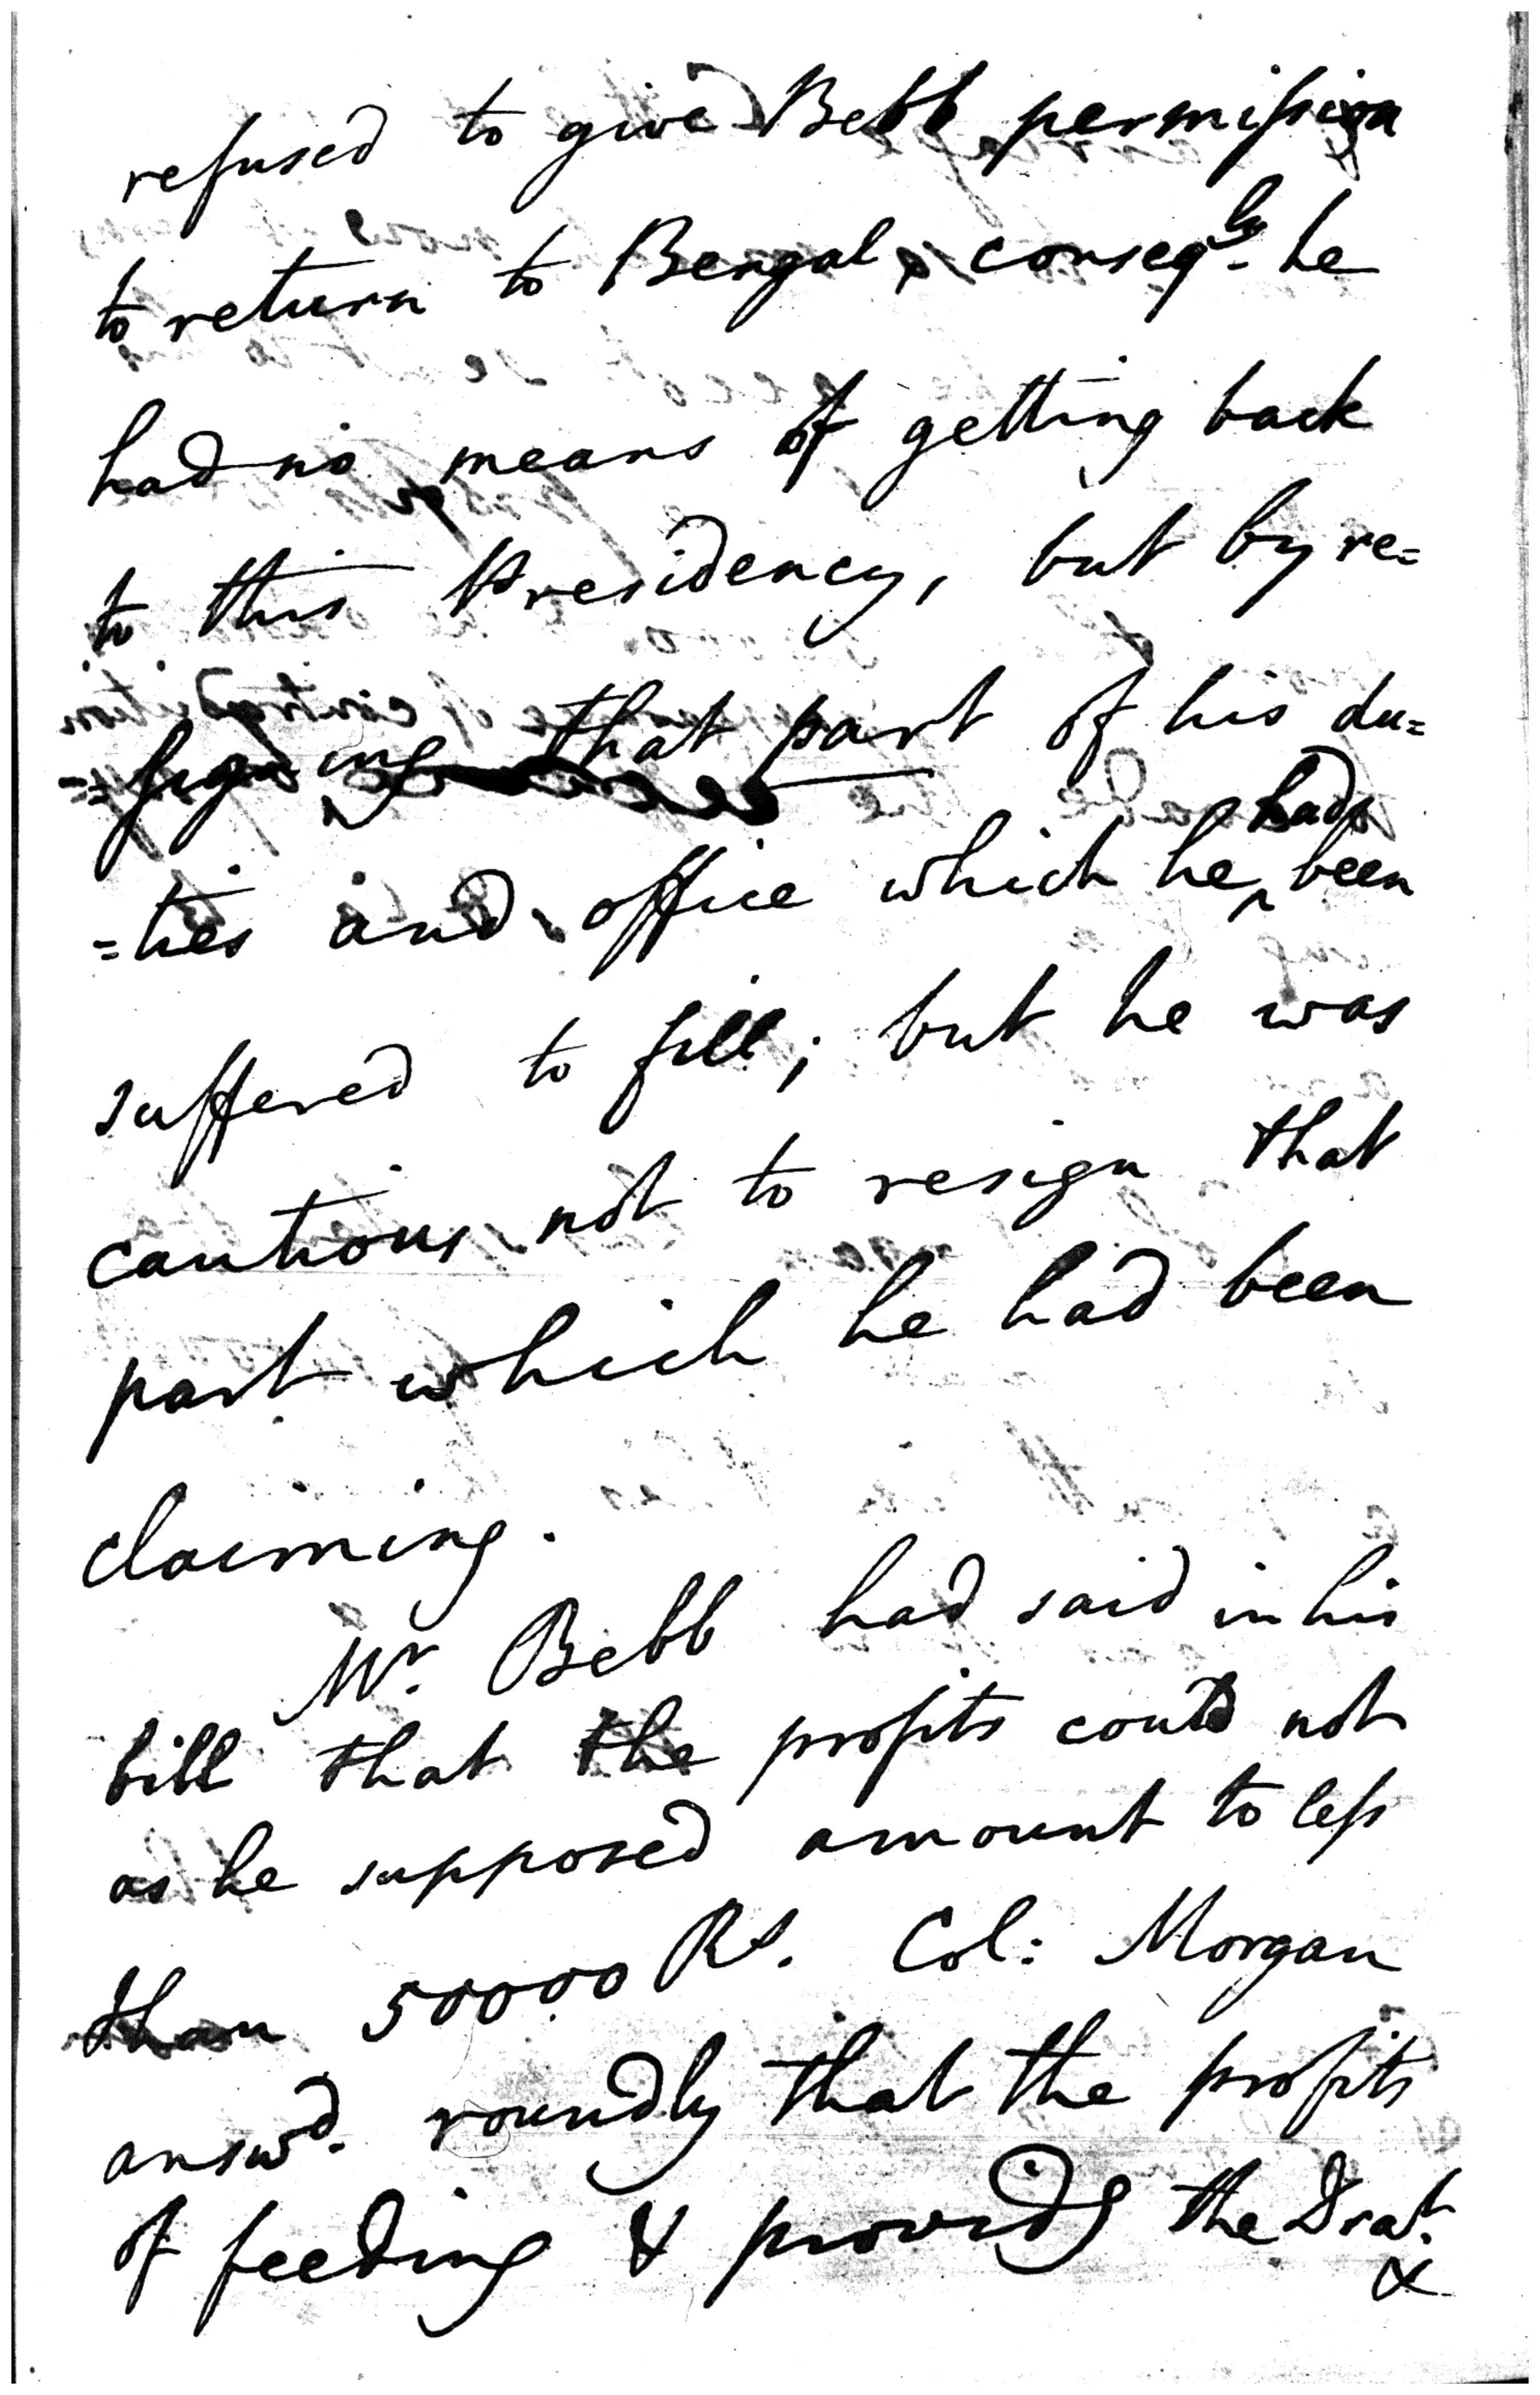 refused to give Bebb permission
to return to Bengal, conseqly he
had no means of getting back
to this Presidency, but by re=
=signing that part of his du=
=ties and office which he had been
suffered to fill; but he was
cautious not to resign that
part which he had been
claiming.
Mr. Bebb had said in his
bill that the profits could not
as he supposed amount to less
than 50000 Rs. Col: Morgan
answd. roundly that the profits
of feeding & providg the Drat.
&